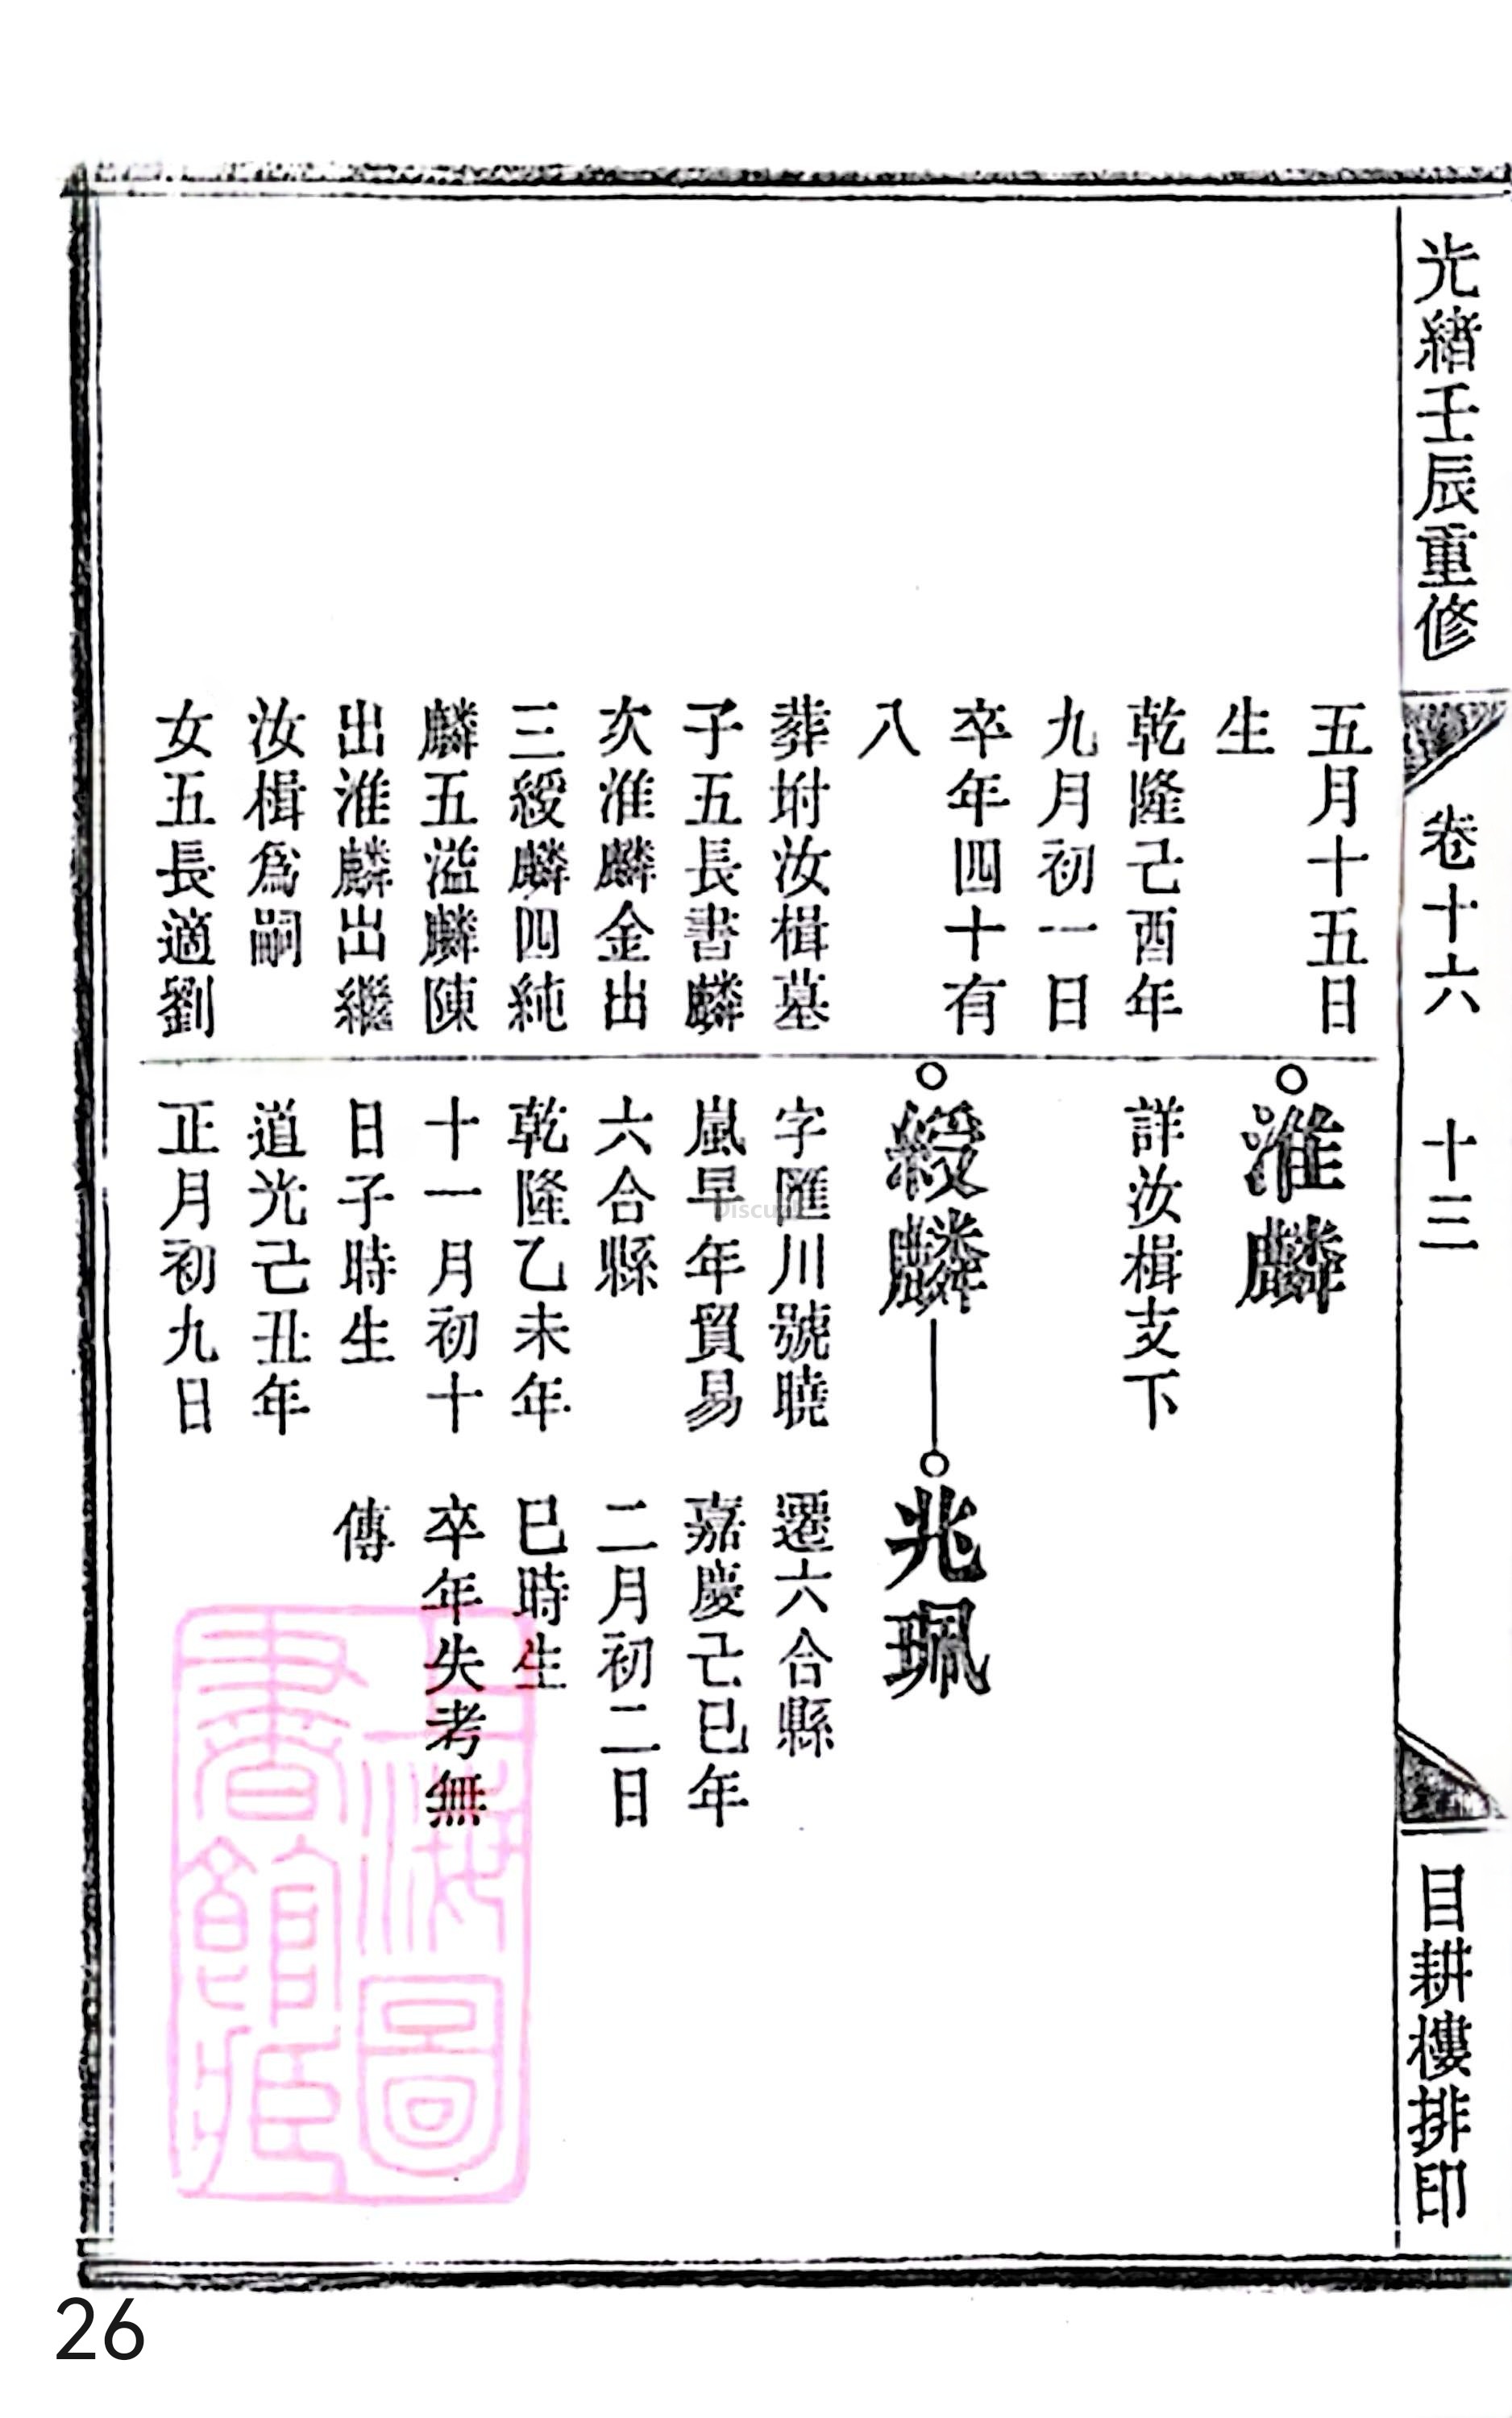 光緖壬辰重修
卷十六
十三
目耕樓排印
五月十五日
生
乾隆己酉年
九月初一日
卒年四十有
八
葬坿汝楫墓
子五長書麟
次淮麟金出
三綬麟四純
麟五溢麟陳
出淮麟出繼
汝楫爲嗣
女五長適劉
淮麟
詳汝楫支下
綬麟
字匯川號曉
嵐早年貿易
六合縣
乾隆乙未年
十一月初十
日子時生
道光己丑年
正月初九日
兆珮
遷六合縣
嘉慶己巳年
二月初二日
巳時生
卒年失考無
傳
上海圖
書館藏
Discuz
26